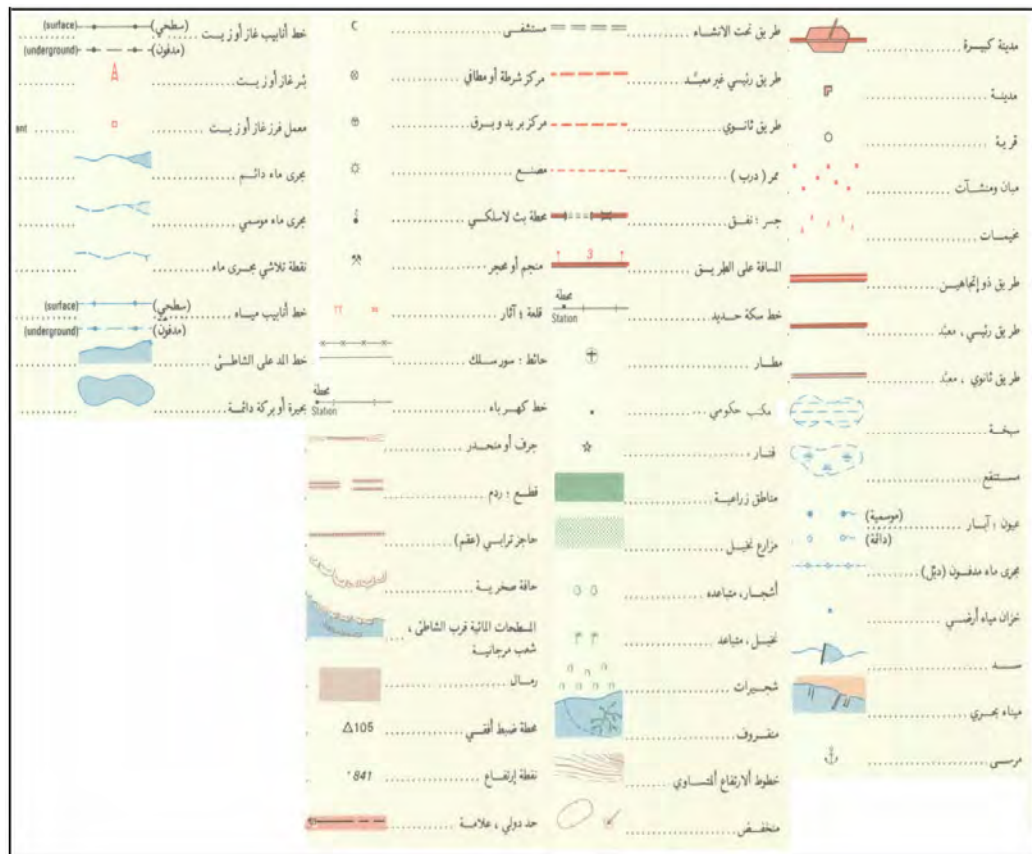 مدينة كبيرة
مدينة
قرية
مبان ومنشآت
مخيمات
طريق ذو إتجاهين
طريق رئيسي ، معبَّد
طريق ثانوي ، معبَّد
سبخة
مستنقع
عيون ؛ آبار (موسمية)
(دائمة)
مجرى ماء مدفون (دبل)
خزان مياه أرضي
سد
ميناء بحري
مرسى
طريق تحت الانشاء
طريق رئيسي غير معبَّد
طريق ثانوي
ممر ( درب )
جسر ؛ نفق
المسافة على الطريق 3
خط سكة حديد محطة
Station
مطار
مكتب حكومي
فنار
مناطق زراعية
مزارع نخيل
أشجار، متباعده
نخيل ، متباعد
شجيرات
منغروف
خطوط ألارتفاع ألمتساوي
منخفض
مستشفى
مركز شرطة أو مطافي
مركز بريد وبرق
مصنع
محطة بث لاسلكي
منجم أو محجر
قلعة ؛ آثار
حائط ؛ سور سلك
خط كهرباء محطة
Station
جرف أو منحدر
قطع ؛ ردم
حاجز ترابي (عقم)
حافة صخرية
المسطحات المائية قرب الشاطئ ،
شعب مرجانية
رمال
محطة ضبط أفقي Δ105
نقطة إرتفاع 841
حد دولي ، علامة
خط أنابيب غاز أوزيت (سطحي) (surface)
(مدفون) (underground)
بئر غاز أوزيت
معمل فرز غاز أوزيت ant
مجرى ماء دائم
مجرى ماء موسمي
نقطة تلاشي مجرى ماء
خط أنابيب مياه (سطحي) (surface)
(مدفون) (underground)
خط المد على الشاطئ
بحيرة أو بركة دائمة